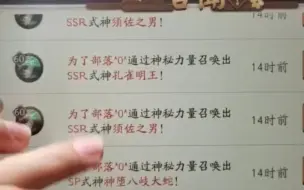 SSR式神须佐之男!
14时前
60
为了部落'0'通过神秘力量召唤出
SSR式神孔雀明王!
14时前
为了部落'0'通过神秘力量召唤出
SSR式神须佐之男!
14时前
为了部落'0'通过神秘力量召唤出
SP式神神堕八岐大蛇!
14时前